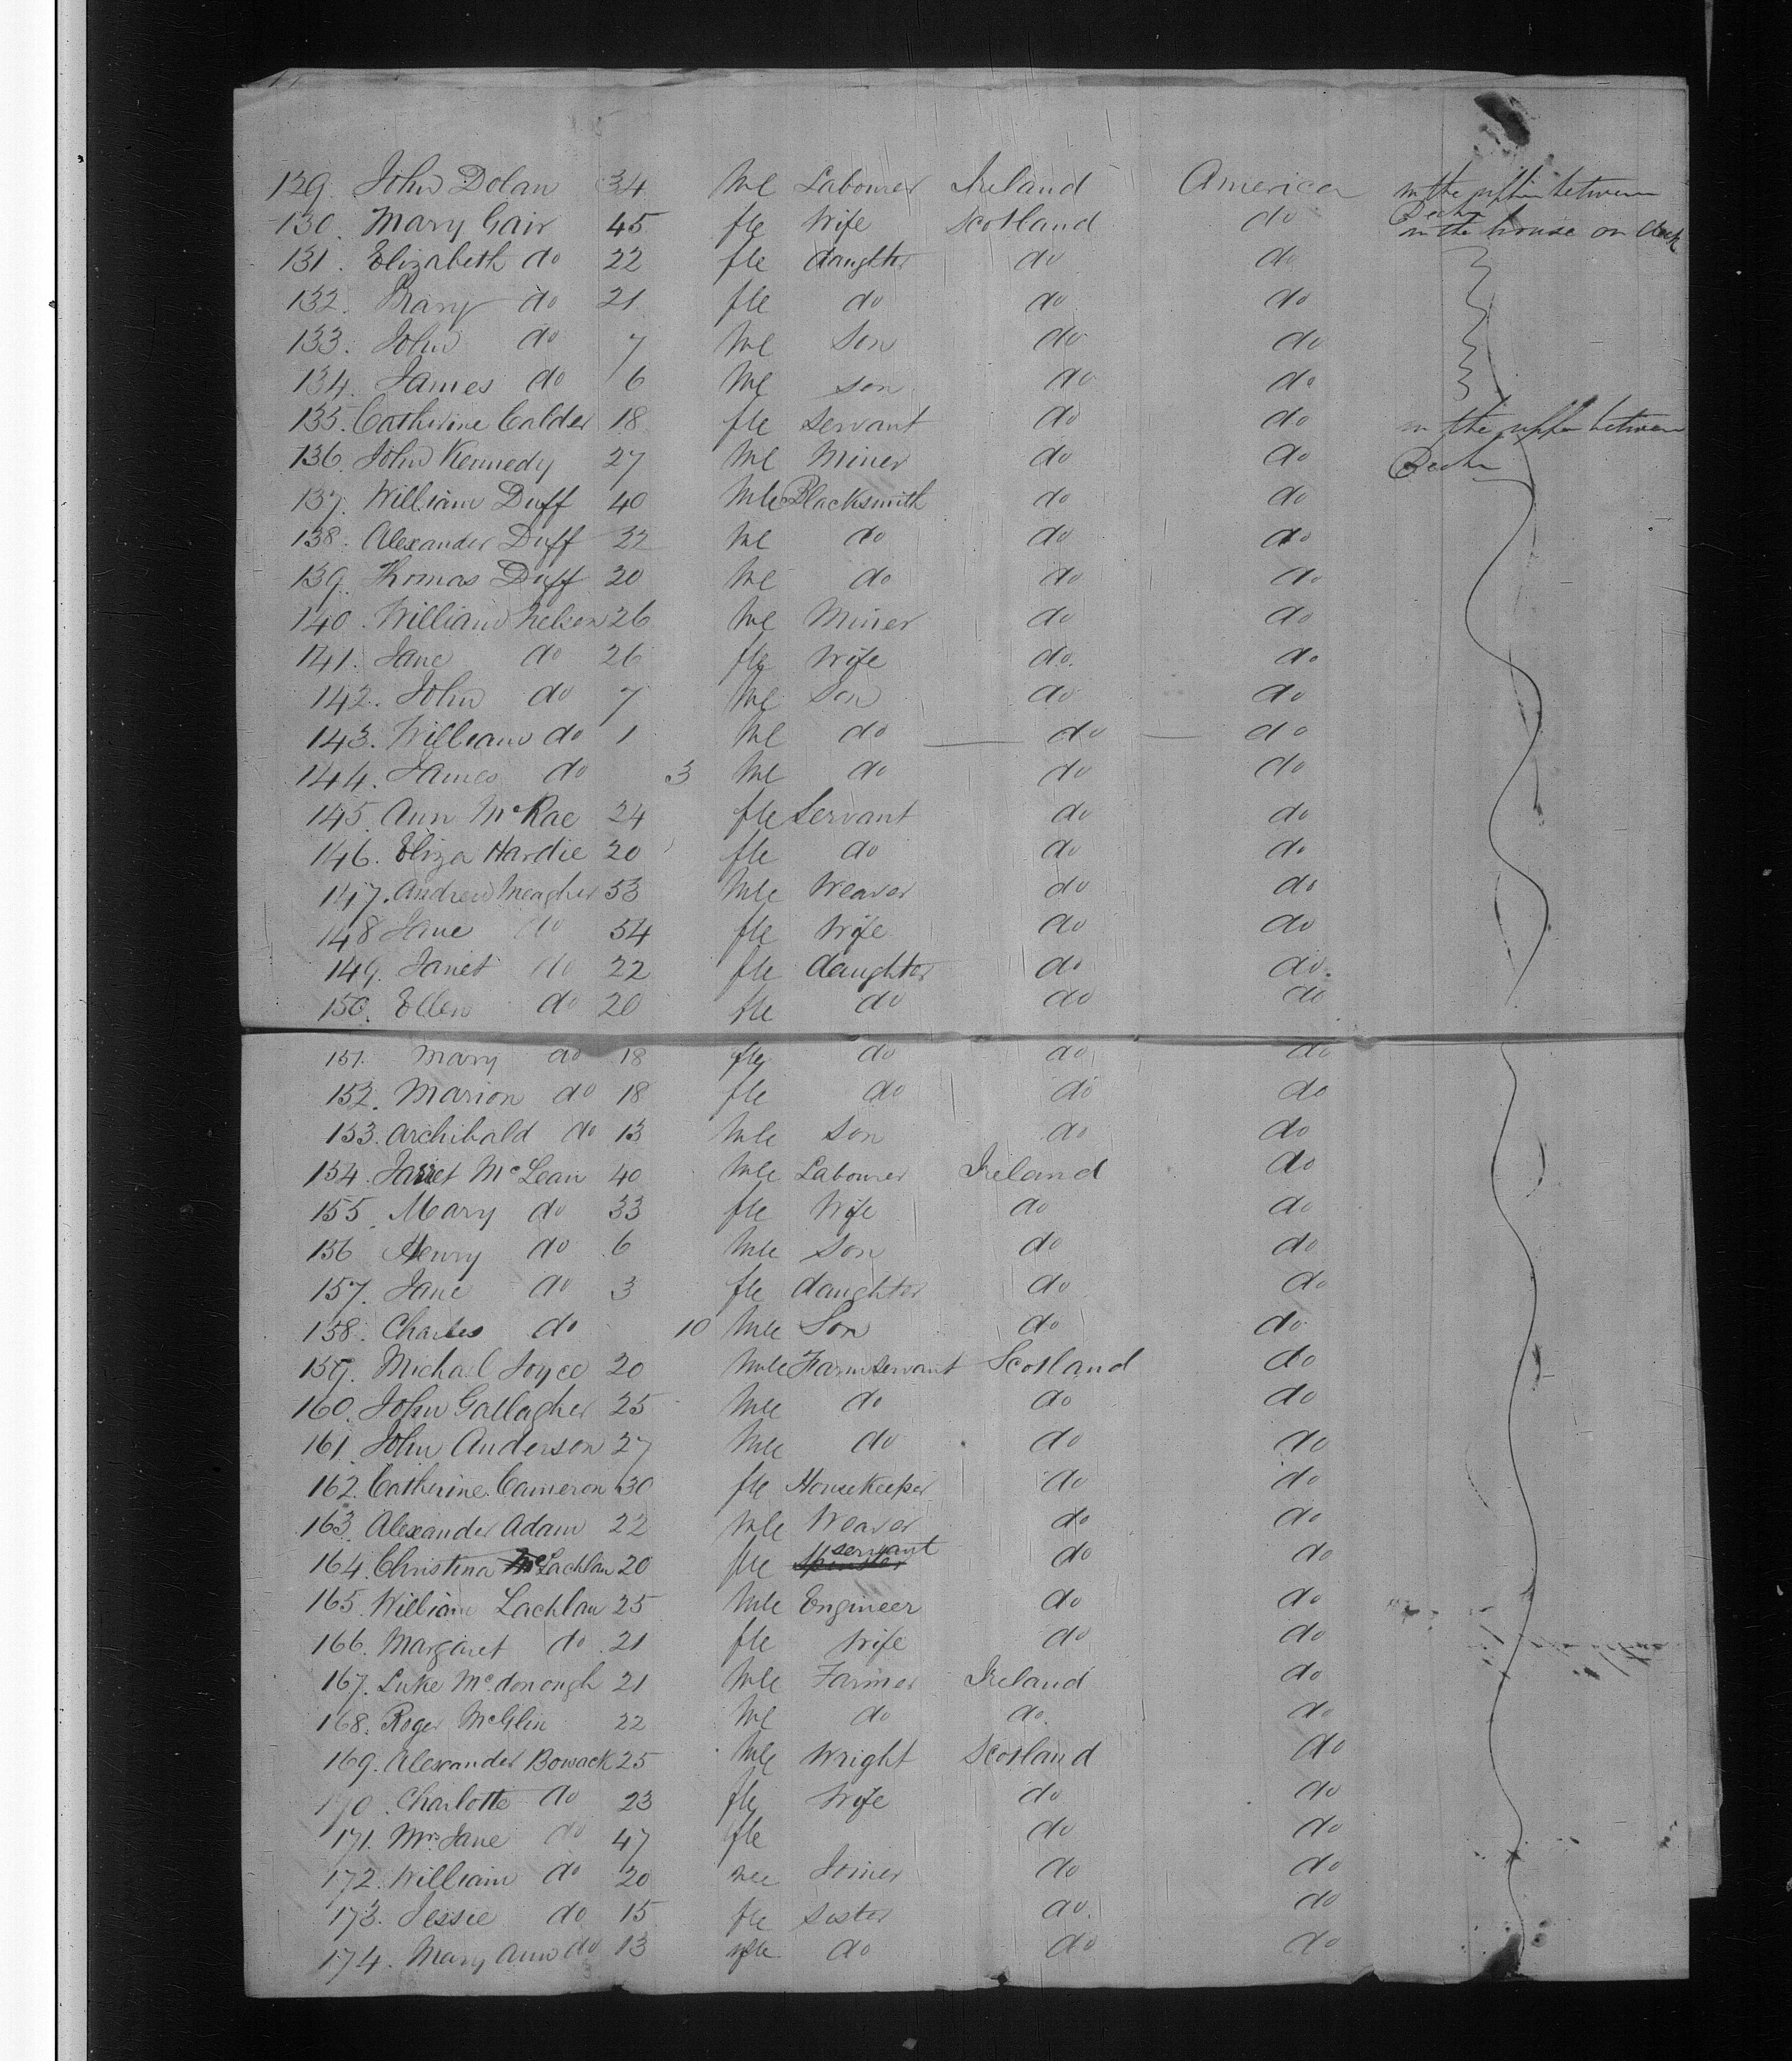 129. John Dolan 34 Ml Labourer Ireland America in the upper between
130. Mary Gair 45 fle Wife Scotland do Decks in the house on deck
131. Elizabeth do 22 fle daughter do do
132. Mary do 21 fle do do do
133. John do 7 Ml Son do do
134. James do 6 Ml son do do
135. Catherine Calder 18 fle servant do do in the upper between
136. John Kennedy 27 Ml Miner do do Decks
137. William Duff 40 Mle Blacksmith do do
138. Alexander Duff 22 Ml do do do
139. Thomas Duff 20 Ml do do do
140. William Nelson 26 Ml Miner do do
141. Jane do 26 fle Wife do. do
142. John do 7 Ml Son do do
143. William do 1 Ml do do do
144. James do 3 Ml do do do
145. Ann McRae 24 fle Servant do do
146. Eliza Hardie 20 fle do do do
147. Andrew Meagher 53 Mle Weaver do do
148 Jane do 54 fle Wife do do
149. Janet do 22 fle daughter do do.
150. Ellen do 20 fle do do do
151. Mary do 18 fle do do do
152. Marion do 18 fle do do do
153. Archibald do 13 Mle Son do do
154. McLean 40 Mle Labourer Ireland do
155. Mary do 33 fle Wife do do
156 Henry do 6 Mle Son do do
157. Jane do 3 fle daughter do do
158. Charles do 10 Mle Son do do
159. Michael Joyce 20 Mle Farmservant Scotland do
160. John Gallagher 25 Mle do do do
161. John Anderson 27 Mle do do do
162. Catherine Cameron 30 fle HouseKeeper do do
163. Alexander Adam 22 Mle Weaver do do
164. Christina Lachlan 20 fle servant do do
165. William Lachlan 25 Mle Engineer do do
166. Margaret do 21 fle Wife do do
167. Luke Mcdonough 21 Mle Farmer Ireland do
168. Roger McGlin 22 Ml do do. do
169. Alexander Bowack 25 Mle Wright Scotland do
170. Charlotte do 23 fle Wife do do
171. Mrs Jane do 47 fle do do
172. William do 20 Mle Joiner do do
173. Jessie do 15 fle Sister do. do
174. Mary Ann do 13 fle do do do